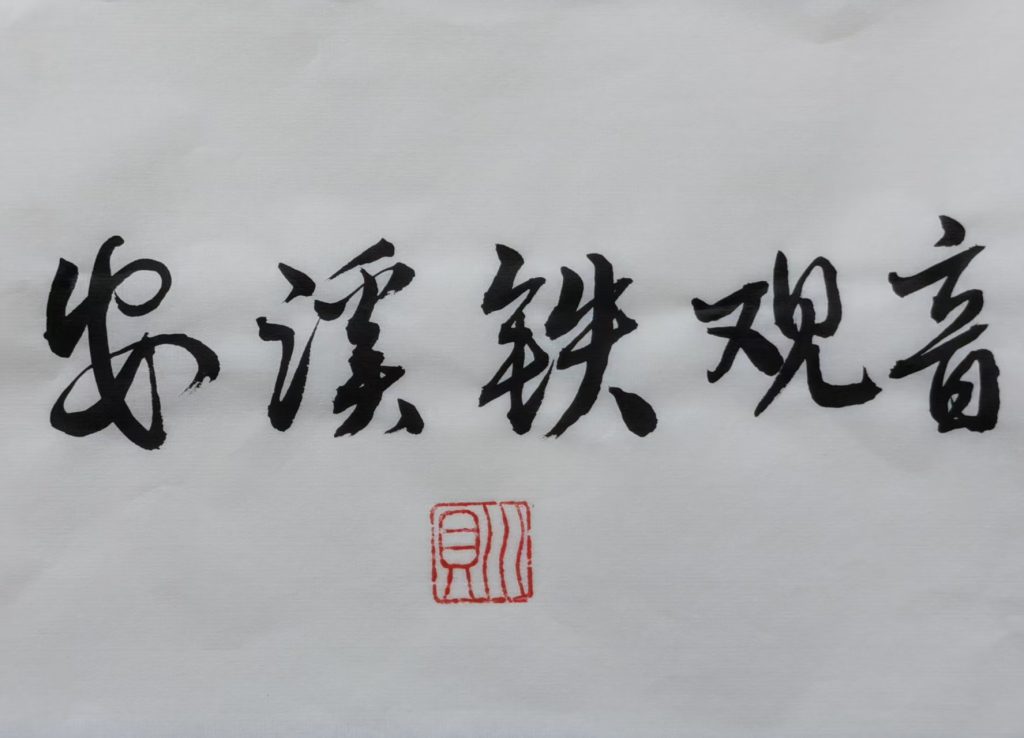 安溪铁观音